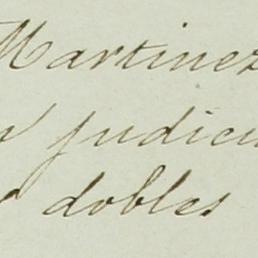 Martinez
judici
dobles